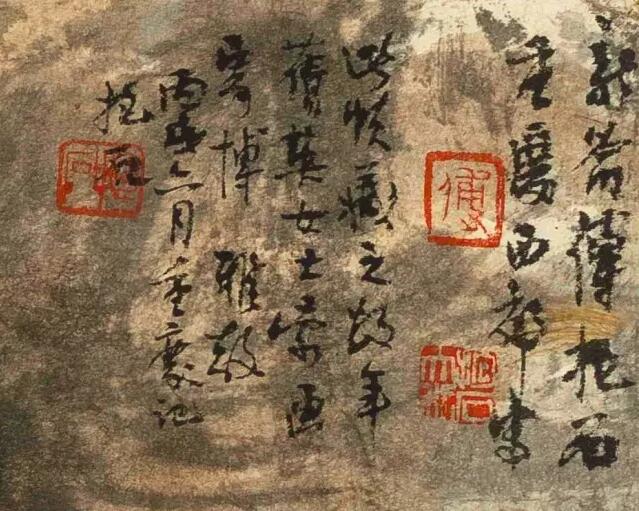 新喻傅抱石
重慶西郊
此幀藏之數年
蒨英女士索画
寄博 雅教
丙戌六月重慶記
抱石
傅